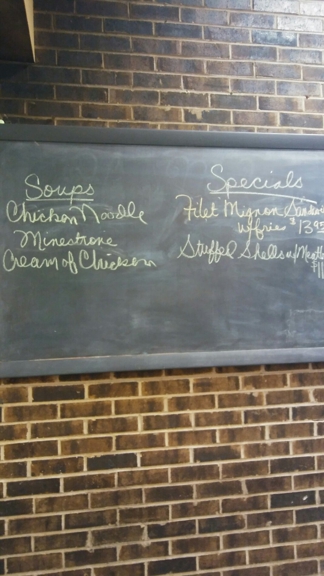 Soups
Chicken Noodle
Minestrone
Cream of Chicken
Specials
Filet Mignon
w/fries $13.95
Stuffed Shells w/Meat